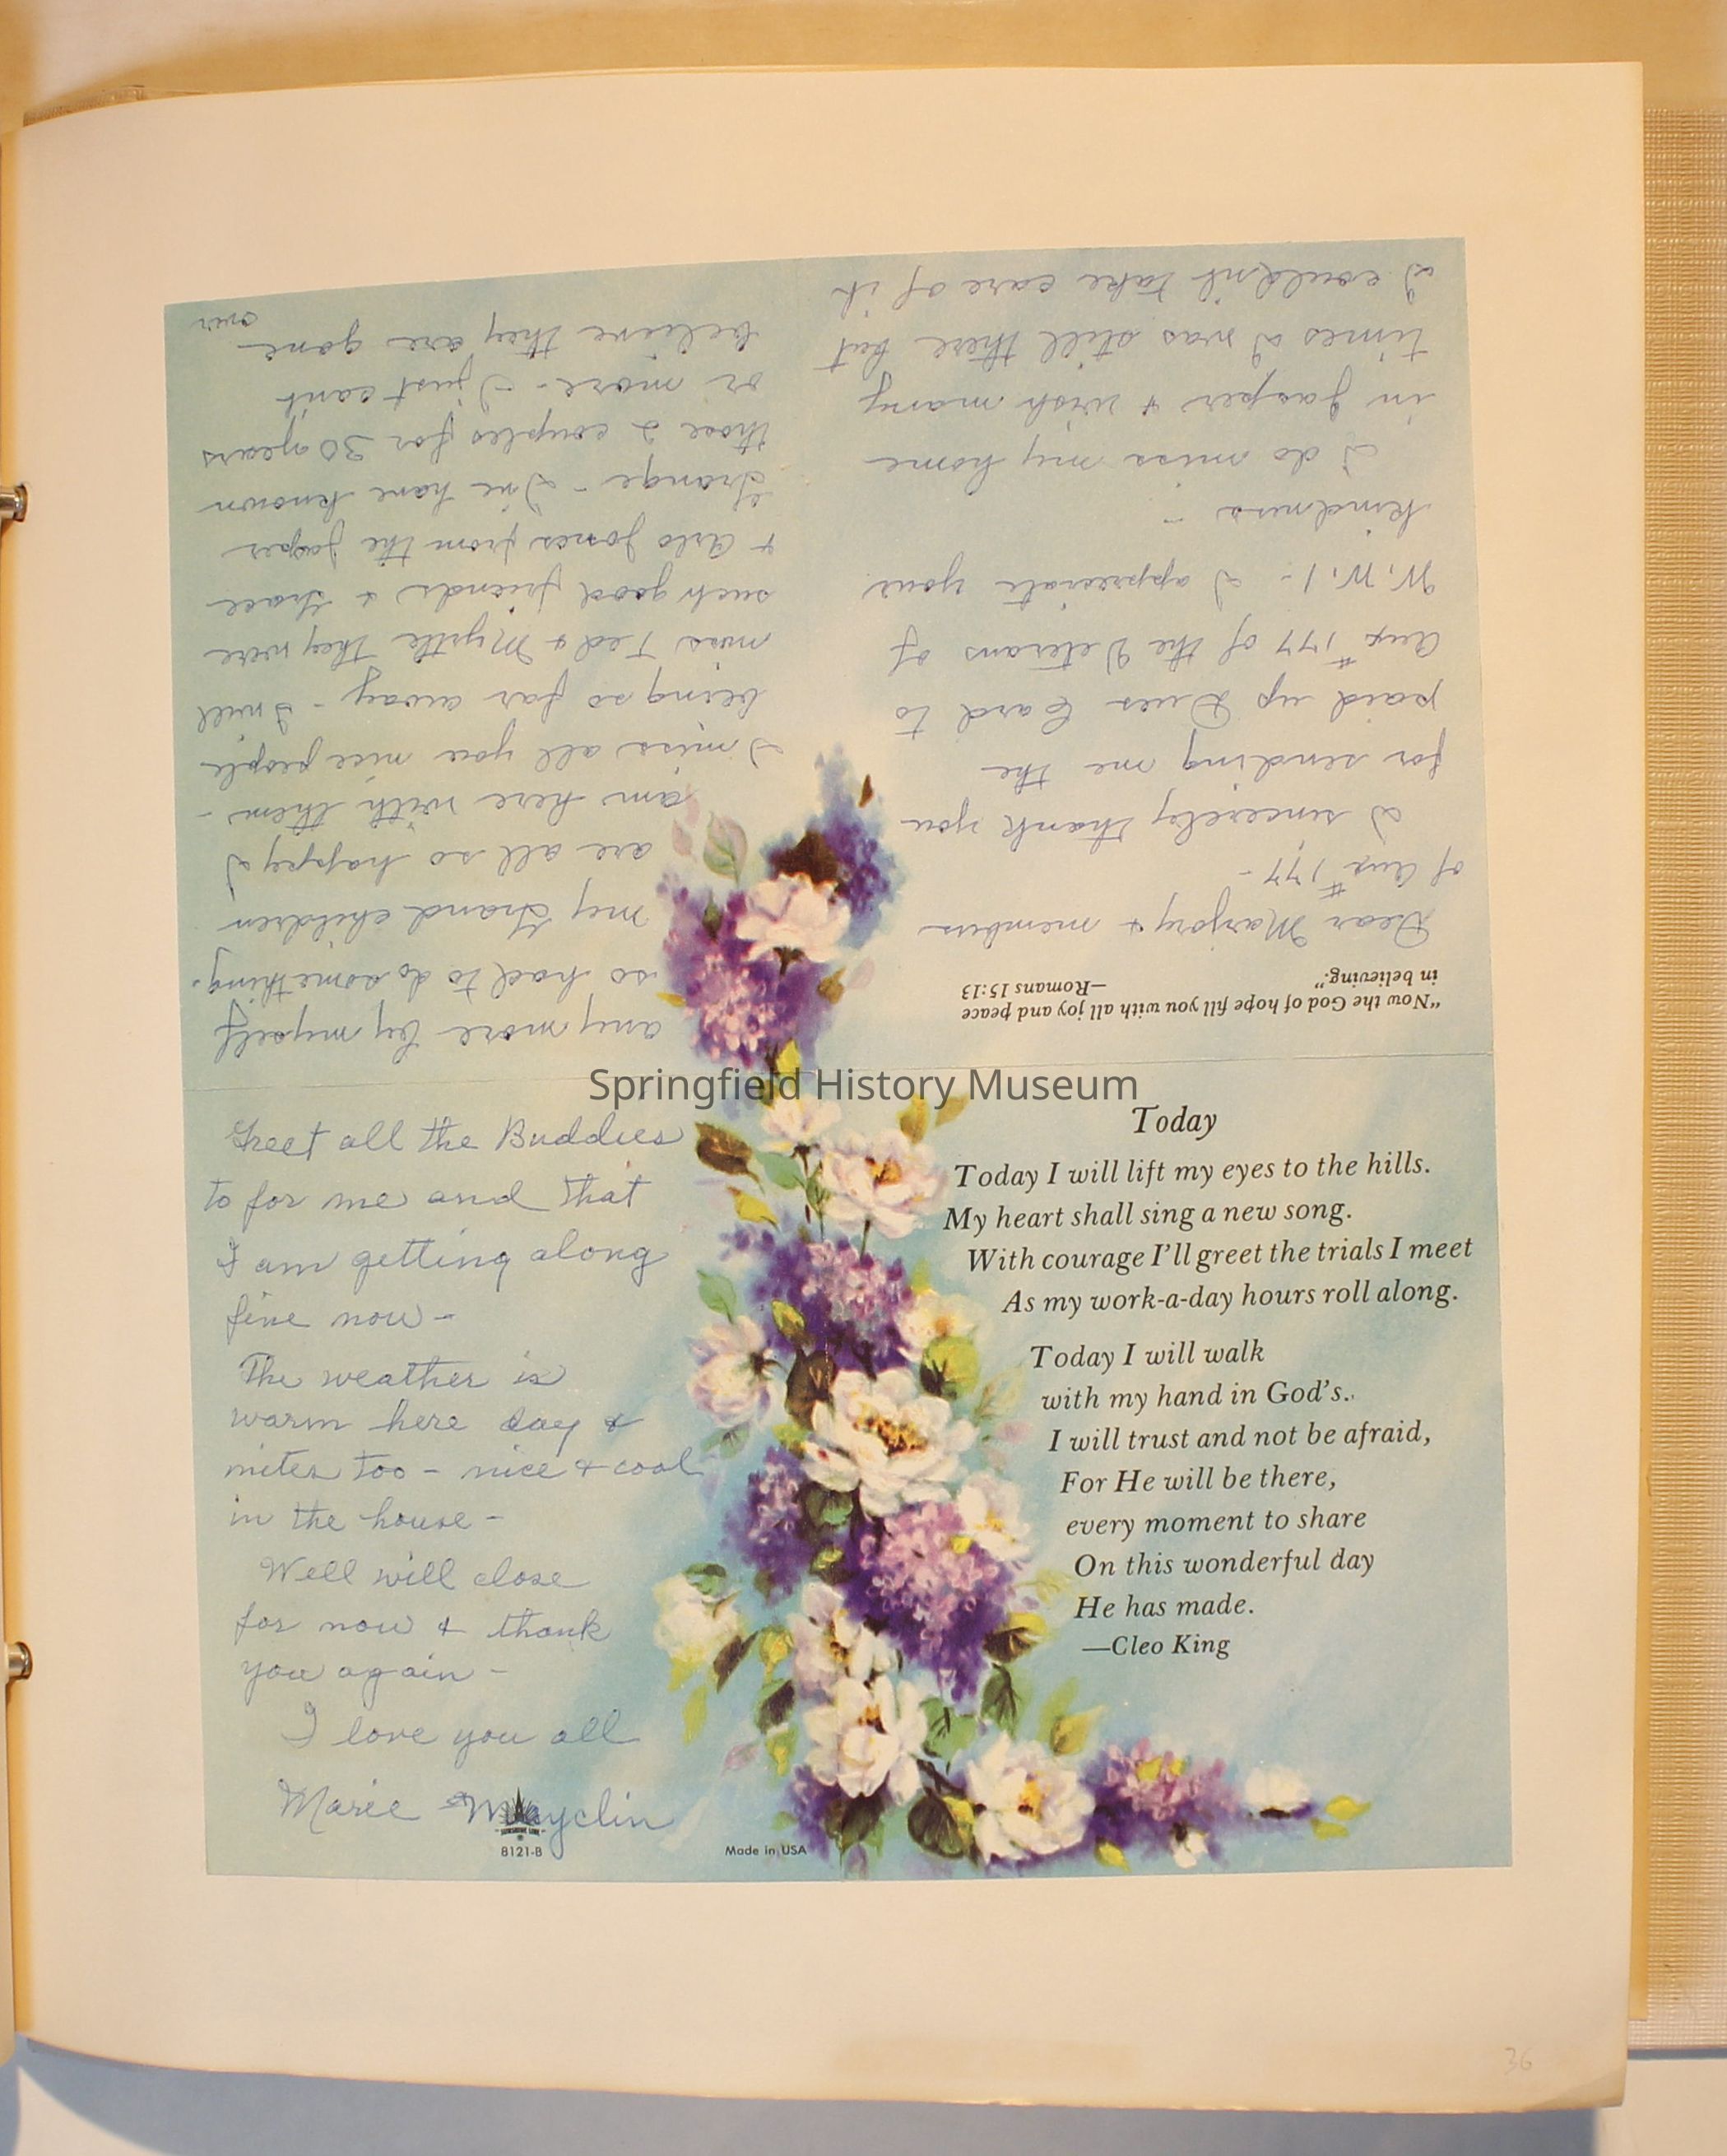 "Now the God of hope fill you with all joy and peace
in believing."
—Romans 15:13
Dear Marjory & members
of Aux #177 -
I sincerely thank you
for sending me the
paid up Dues Card to
Aux #177 of the Veterans of
W.W.1 - I appreciate your
kindness -
I do miss my home
in Jasper & wish many
times I was still there but
I couldn't take care of it
any more by myself
so had to do something.
my Grand children
are all so happy I
am here with them -
I miss all you nice people
being so far away - I will
miss Ted & Myrtle they were
such good friends & Grace
& Arlo Jones from the Jasper
Grange - I've have known
those 2 couples for 30 years
or more - I just can't
believe they are gone
over
Today
Today I will lift my eyes to the hills.
My heart shall sing a new song.
With courage I'll greet the trials I meet
As my work-a-day hours roll along.
Today I will walk
with my hand in God's.
I will trust and not be afraid,
For He will be there,
every moment to share
On this wonderful day
He has made.
—Cleo King
Greet all the Buddies
to for me and that
I am getting along
fine now -
The weather is
warm here day &
nites too - nice & cool
in the house -
Well will close
for now & thank
you again -
I love you all
Marie Mayclin
SUNSHINE LINE
®
8121-B
Made in USA
Springfield History Museum
36